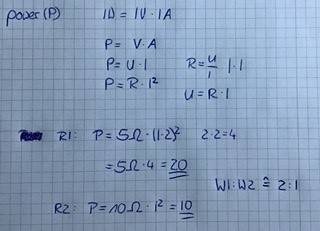 power (P) 1W = 1V · 1A
P = V · A
P = U · I R = U/I | · I
P = R · I² U = R · I
R1: P = 5Ω · (1·2)² 2·2=4
= 5Ω · 4 = 20
W1:W2 ≙ 2:1
R2: P = 10Ω · 1² = 10